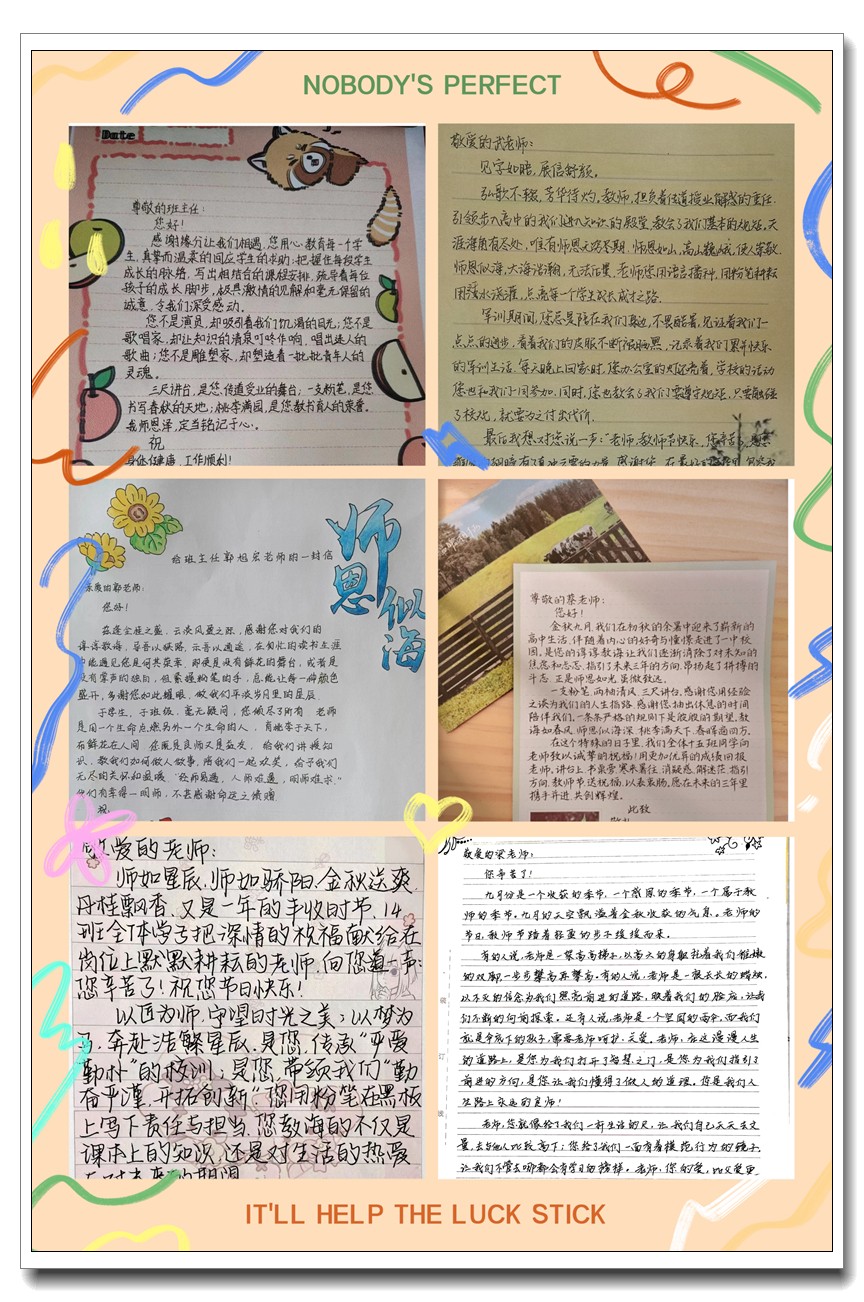 NOBODY'S PERFECT
Date
尊敬的班主任：
您好！
感谢缘分让我们相遇，您用心教育每一个学
生，真挚而温柔的回应学生的求助；把握住每段学生
成长的脉络，写出相结合的课程安排，疏导着每位
孩子的成长脚步，极具激情的见解和毫无保留的
诚意，令我们深受感动。
您不是演员，却吸引着我们饥渴的目光；您不是
歌唱家，却让知识的清泉叮咚作响，唱出迷人的
歌曲；您不是雕塑家，却塑造着一批批青年人的
灵魂。
三尺讲台，是您传道受业的舞台；一支粉笔，是您
书写春秋的天地；桃李满园，是您教书育人的荣眷。
我师恩泽，定当铭记于心。
祝
身体健康，工作顺利！
敬爱的武老师：
见字如晤，展信舒颜。
弘歌不辍，芳华待灼。教师，担负着传道授业解惑的重任，
引领步入高中的我们进入知识的殿堂，教会了我们基本的规矩。天
涯海角有尽处，唯有师恩无穷尽期。师恩如山，高山巍峨，使人崇敬。
师恩似海，大海浩瀚，无法估量。老师您用语言播种，用粉笔耕耘
用汗水浇灌，点亮每一个学生成长成才之路。
军训期间，您总是陪在我们身边，不畏酷暑，见证着我们一
点点的进步，看着我们的皮肤不断被晒黑，记录着我们累并快乐
的军训生活。每天晚上回家时，您办公室的灯还亮着，学校的活动
您也和我们一同参加。同时，您也教会了我们要遵守规矩，只要触碰
了校规，就要为之付出代价。
最后我想对您说一声：“老师，教师节快乐，您辛苦了
师恩似海
给班主任郭旭宏老师的一封信
亲爱的郭老师：
您好！
兹逢金桂之盛，云淡风盈之际，感谢您对我们的
谆谆教诲，草吾以峡路，示吾以通途，在如此的读书生涯
中能遇见您是何其荣幸，即使是没有鲜花的舞台，或者是
没有掌声的独白，但紧握粉笔的手，总能让每一种颜色
盛开，多谢您如此耀眼，做我们平淡岁月里的星辰
于学生，于班级，毫无疑问，您倾尽了所有 老师
是用一个生命点燃另外一个生命的人，育桃李于天下，
布鲜花在人间 您既是良师又是益友，给我们讲授知
识，教我们如何做人做事，陪我们一起欢笑，给予我们
无尽的关怀和温暖，“经师易遇，人师难遇，明师难求”
他们有幸得一明师，不甚感谢命运之馈赠
祝：
尊敬的蔡老师：
您好！
金秋九月，我们在初秋的余暑中迎来了崭新的
高中生活，伴随着内心的好奇与憧憬走进了一中校
园，是您的谆谆教诲让我们逐渐消除了对未知的
焦虑和忐忑，指引了未来三年的方向，昂扬起了拼搏的
斗志，正是师恩如光，虽微致远。
一支粉笔，两袖清风，三尺讲台，感谢您用经验
之谈为我们的人生指路，感谢您抽出休息的时间
陪伴我们，一条条严格的规则下是殷殷的期望，教
诲如春风，师恩似海深，桃李满天下，春晖遍四方。
在这个特殊的日子里，我们全体十五班同学向
老师致以诚挚的祝福！用更加优异的成绩回报
老师，讲台上，书桌旁，寒来暑往，消疑惑，解迷茫，指引
方向，教师节，送祝福，以表衷肠，愿在未来的三年里
携手并进，共创辉煌。
此致
敬爱的老师：
师如星辰，师如骄阳，金秋送爽，
丹桂飘香，又是一年的丰收时节，14
班全体学子把深情的祝福献给在
岗位上默默耕耘的老师，向您道一声：
您辛苦了！祝您节日快乐！
以匠为师，守望时光之美；以梦为
马，奔赴浩繁星辰，是您，传承“严爱
勤朴”的校训；是您，带领我们“勤
奋严谨，开拓创新”，您用粉笔在黑板
上写下责任与担当，您教诲的不仅是
课本上的知识，还是对生活的热爱
敬爱的梁老师：
您辛苦了！
九月份是一个收获的季节，一个感恩的季节，一个属于教
师的季节。九月的天空飘溢着金秋收获的气息。老师的
节日，教师节踏着轻盈的步子缓缓而来。
有的人说，老师是一架高高梯子，以高大的身躯托着我们稚嫩
的双脚，一步步攀高再攀高。有的人说，老师是一根长长的蜡烛，
以不灭的信念为我们照亮前进的道路，映着我们的脸庞，让我
们不断的向前探索。还有人说，老师是一个坚固的雨伞，而我们
就是伞底下的孩子，需要老师呵护、关爱。老师，在这漫漫人生
的道路上，是您为我们打开了智慧之门，是您为我们指引了
前进的方向，是您让我们懂得了做人的道理。您是我们人
生路上永远的良师！
老师，您就像给了我们一杆生活的尺，让我们自己天天去丈
量，去与他人比较高下；您给了我们一面有着模范行为的镜子，
让我们不管去哪都会有学习的榜样。老师，您的爱，比父爱更
IT'LL HELP THE LUCK STICK